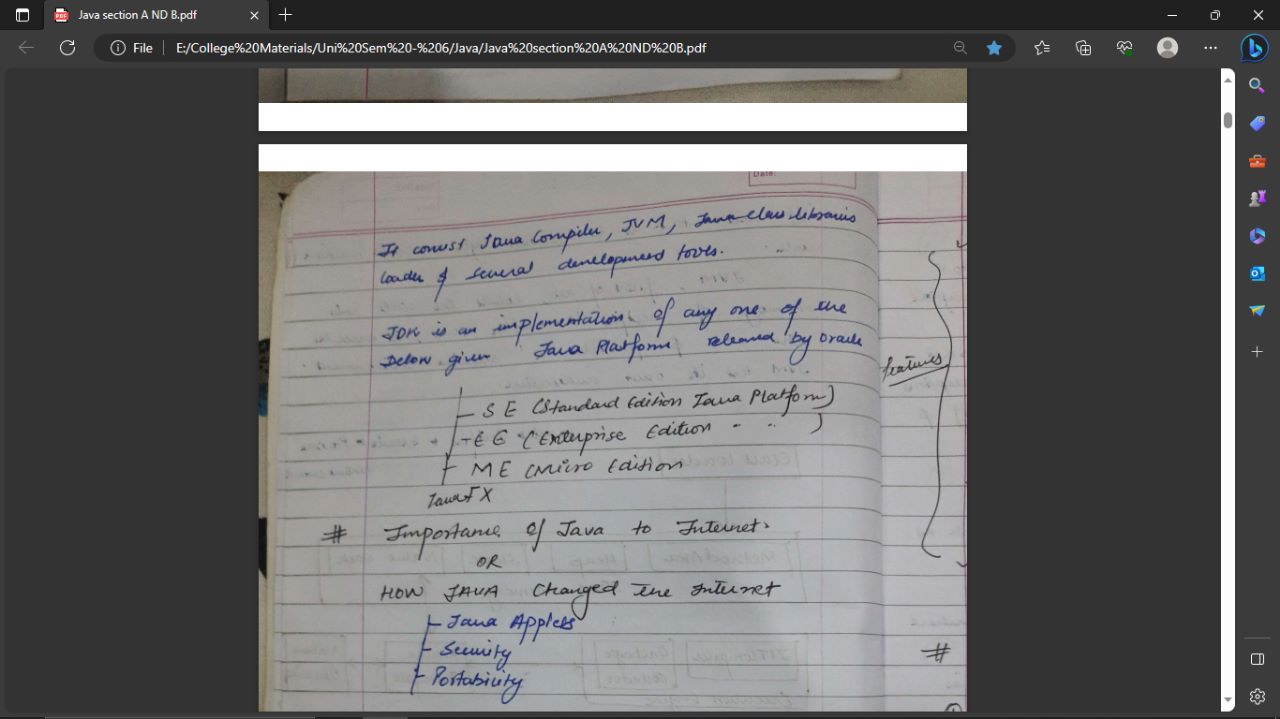 Java section A ND B.pdf
File
E:/College%20Materials/Uni%20Sem%20-%206/Java/Java%20section%20A%20ND%20B.pdf
Date
It consist Java Compiler, JVM, Java class libraries
loader & several development tools.
JDK is an implementation of any one of the
below given Java Platform released by oracle
SE (Standard Edition Java Platform)
EE (Enterprise Edition " " )
ME (Micro Edition
JavaFX
features
# Importance of Java to Internet.
OR
HOW JAVA Changed the Internet
Java Applets
Security
Portability
#